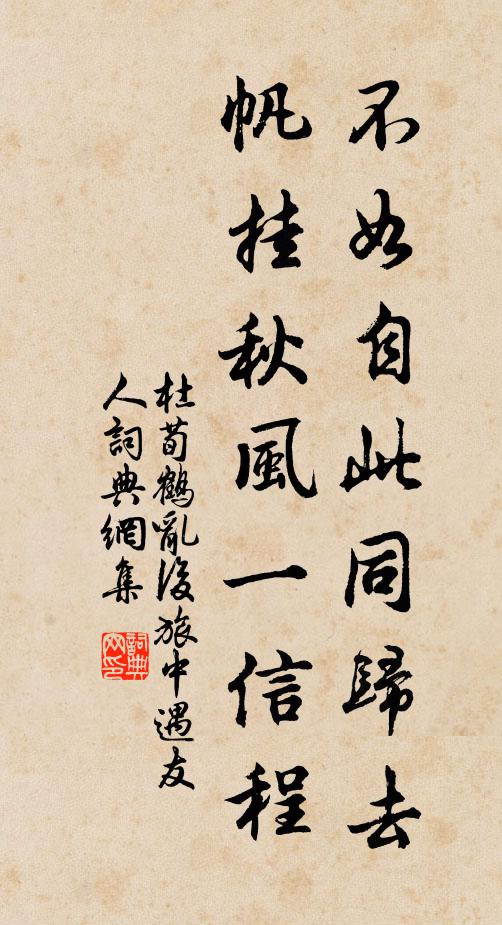 不如自此同歸去
帆挂秋風一信程
杜荀鶴亂後旅中遇友
人詞典網集
詞典
网印